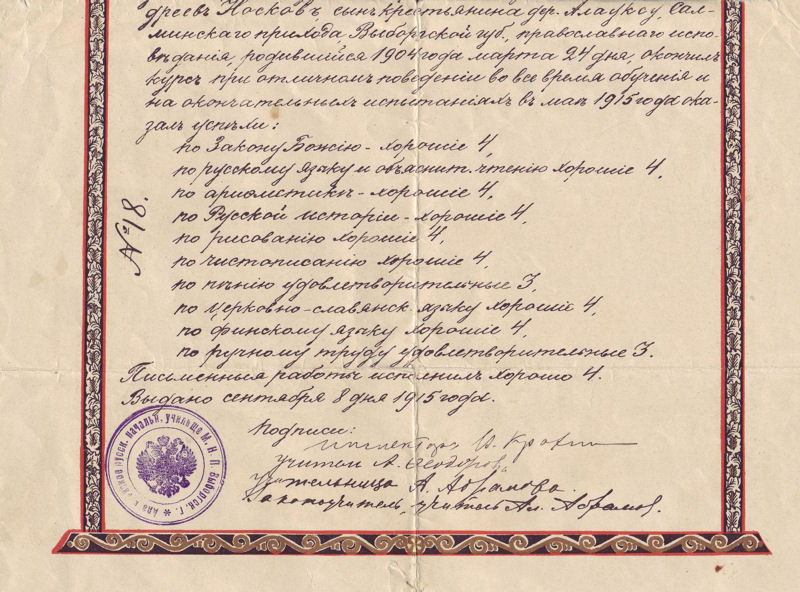 дреевъ Носковъ сынъ крестьянина дер. Алауксу, Сал-
минскаго прихода Выборгской губ., православнаго испо-
вѣданія, родившійся 1904 года марта 24 дня, окончилъ
курсъ при отличномъ поведеніи во все время обученія и
на окончательныхъ испытаніяхъ въ маѣ 1915 года ока-
залъ успѣхи:
по Закону Божію - хорошіе 4,
по русскому языку и объяснит. чтенію хорошіе 4,
по ариѳметикѣ - хорошіе 4,
по Русской исторіи - хорошіе 4,
по рисованію хорошіе 4,
по чистописанію хорошіе 4,
по пѣнію удовлетворительные 3,
по церковно-славянск. языку хорошіе 4,
по финскому языку хорошіе 4,
по ручному труду удовлетворительные 3.
Письменныя работы исполнилъ хорошо 4.
Выдано сентября 8 дня 1915 года.
№ 18.
Подписи:
инспекторъ И.
учитель А. Ѳеодоровъ
учительница А. Абрамова.
Законоучитель, учитель Ал. Абрамов.
русск. начальн. училище М. Н. П. Выборгск. г.